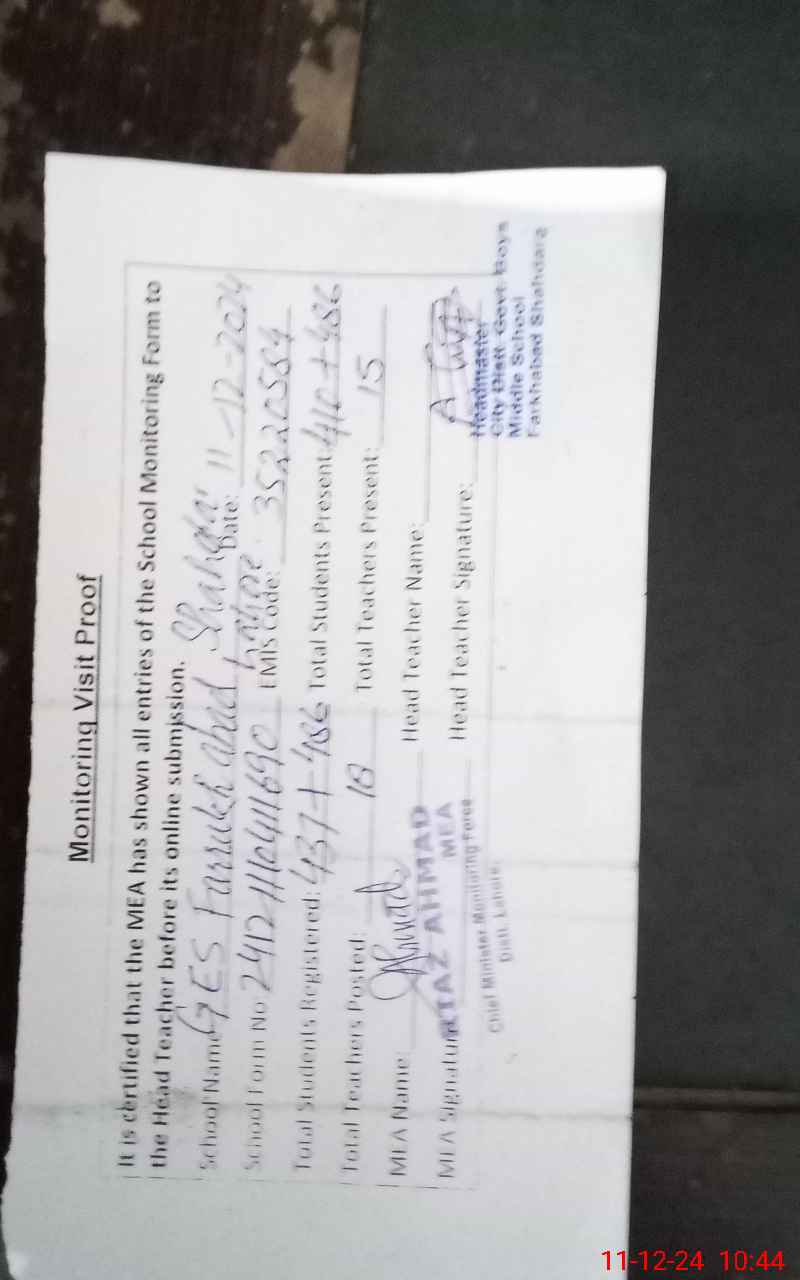 Monitoring Visit Proof
It is certified that the MEA has shown all entries of the School Monitoring Form to
the Head Teacher before its online submission.
School Name GES Farrukh abad Shahdara Lahore Date: 11-12-2024
School Form No 2412111641690 EMIS Code: 35220584
Total Students Registered: 437+486 Total Students Present: 410+486
Total Teachers Posted: 18 Total Teachers Present: 15
MEA Name: Head Teacher Name:
MEA Signature Head Teacher Signature:
AHMAD
MEA
Chief Minister Monitoring Force
Distt. Lahore.
Headmaster
City Distt Govt. Boys
Middle School
Farkhabad Shahdara
11-12-24 10:44